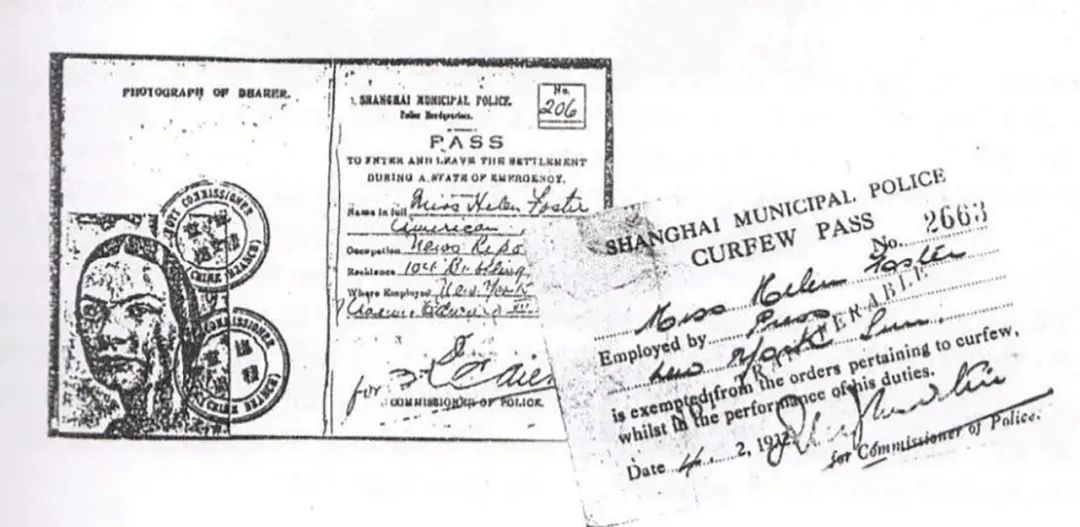 PHOTOGRAPH OF BEARER.
DEPUTY COMMISSIONER
(CRIME BRANCH)
SHANGHAI MUNICIPAL POLICE.
Police Headquarters.
No.
206
PASS
TO ENTER AND LEAVE THE SETTLEMENT
DURING A STATE OF EMERGENCY.
Name in full Miss Helen Foster
American
Occupation News Repo
Residence
Where Employed New York
for
COMMISSIONER OF POLICE.
SHANGHAI MUNICIPAL POLICE
CURFEW PASS
No. 2663
Miss Helen Foster
Employed by Press
New York Sun.
TRANSFERABLE
is exempted from the orders pertaining to curfew,
whilst in the performance of his duties.
Date 4. 2, 193
for Commissioner of Police.